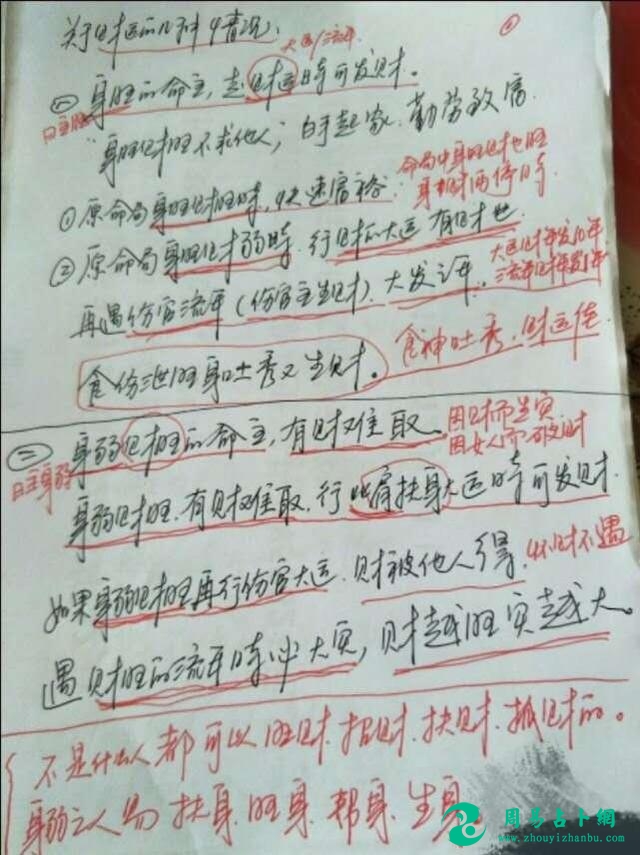 关于财运的几种情况.
大运/流年
㈠ 身旺的命主, 走财运时可发财.
日主旺
"身旺财旺不求他人," 白手起家. 勤劳致富.
① 原命局身旺财旺时, 快速富裕.
命局中身旺财也旺
身财两停时.
② 原命局身旺财弱时. 行财的大运 有财也
再遇伤官流年(伤官主生财). 大发之年.
大运财年发10年
流年财年发1年
食伤泄旺身吐秀又生财.
食神吐秀, 财运佳
㈡ 身弱财旺的命主, 有财难取.
日主身弱
因财而生灾
因女人而破财
身弱财旺. 有财难取. 行比肩扶身大运时可发财.
如果身弱财旺再行伤官大运. 财被他人得. 怀财不遇
遇财旺的流年时必大灾, 财越旺灾越大.
不是什么人都可以旺财. 招财. 扶财. 抓财的。
身弱之人 扶身. 旺身. 帮身. 生身.
周易占卜網
www.zhouyizhanbu.com